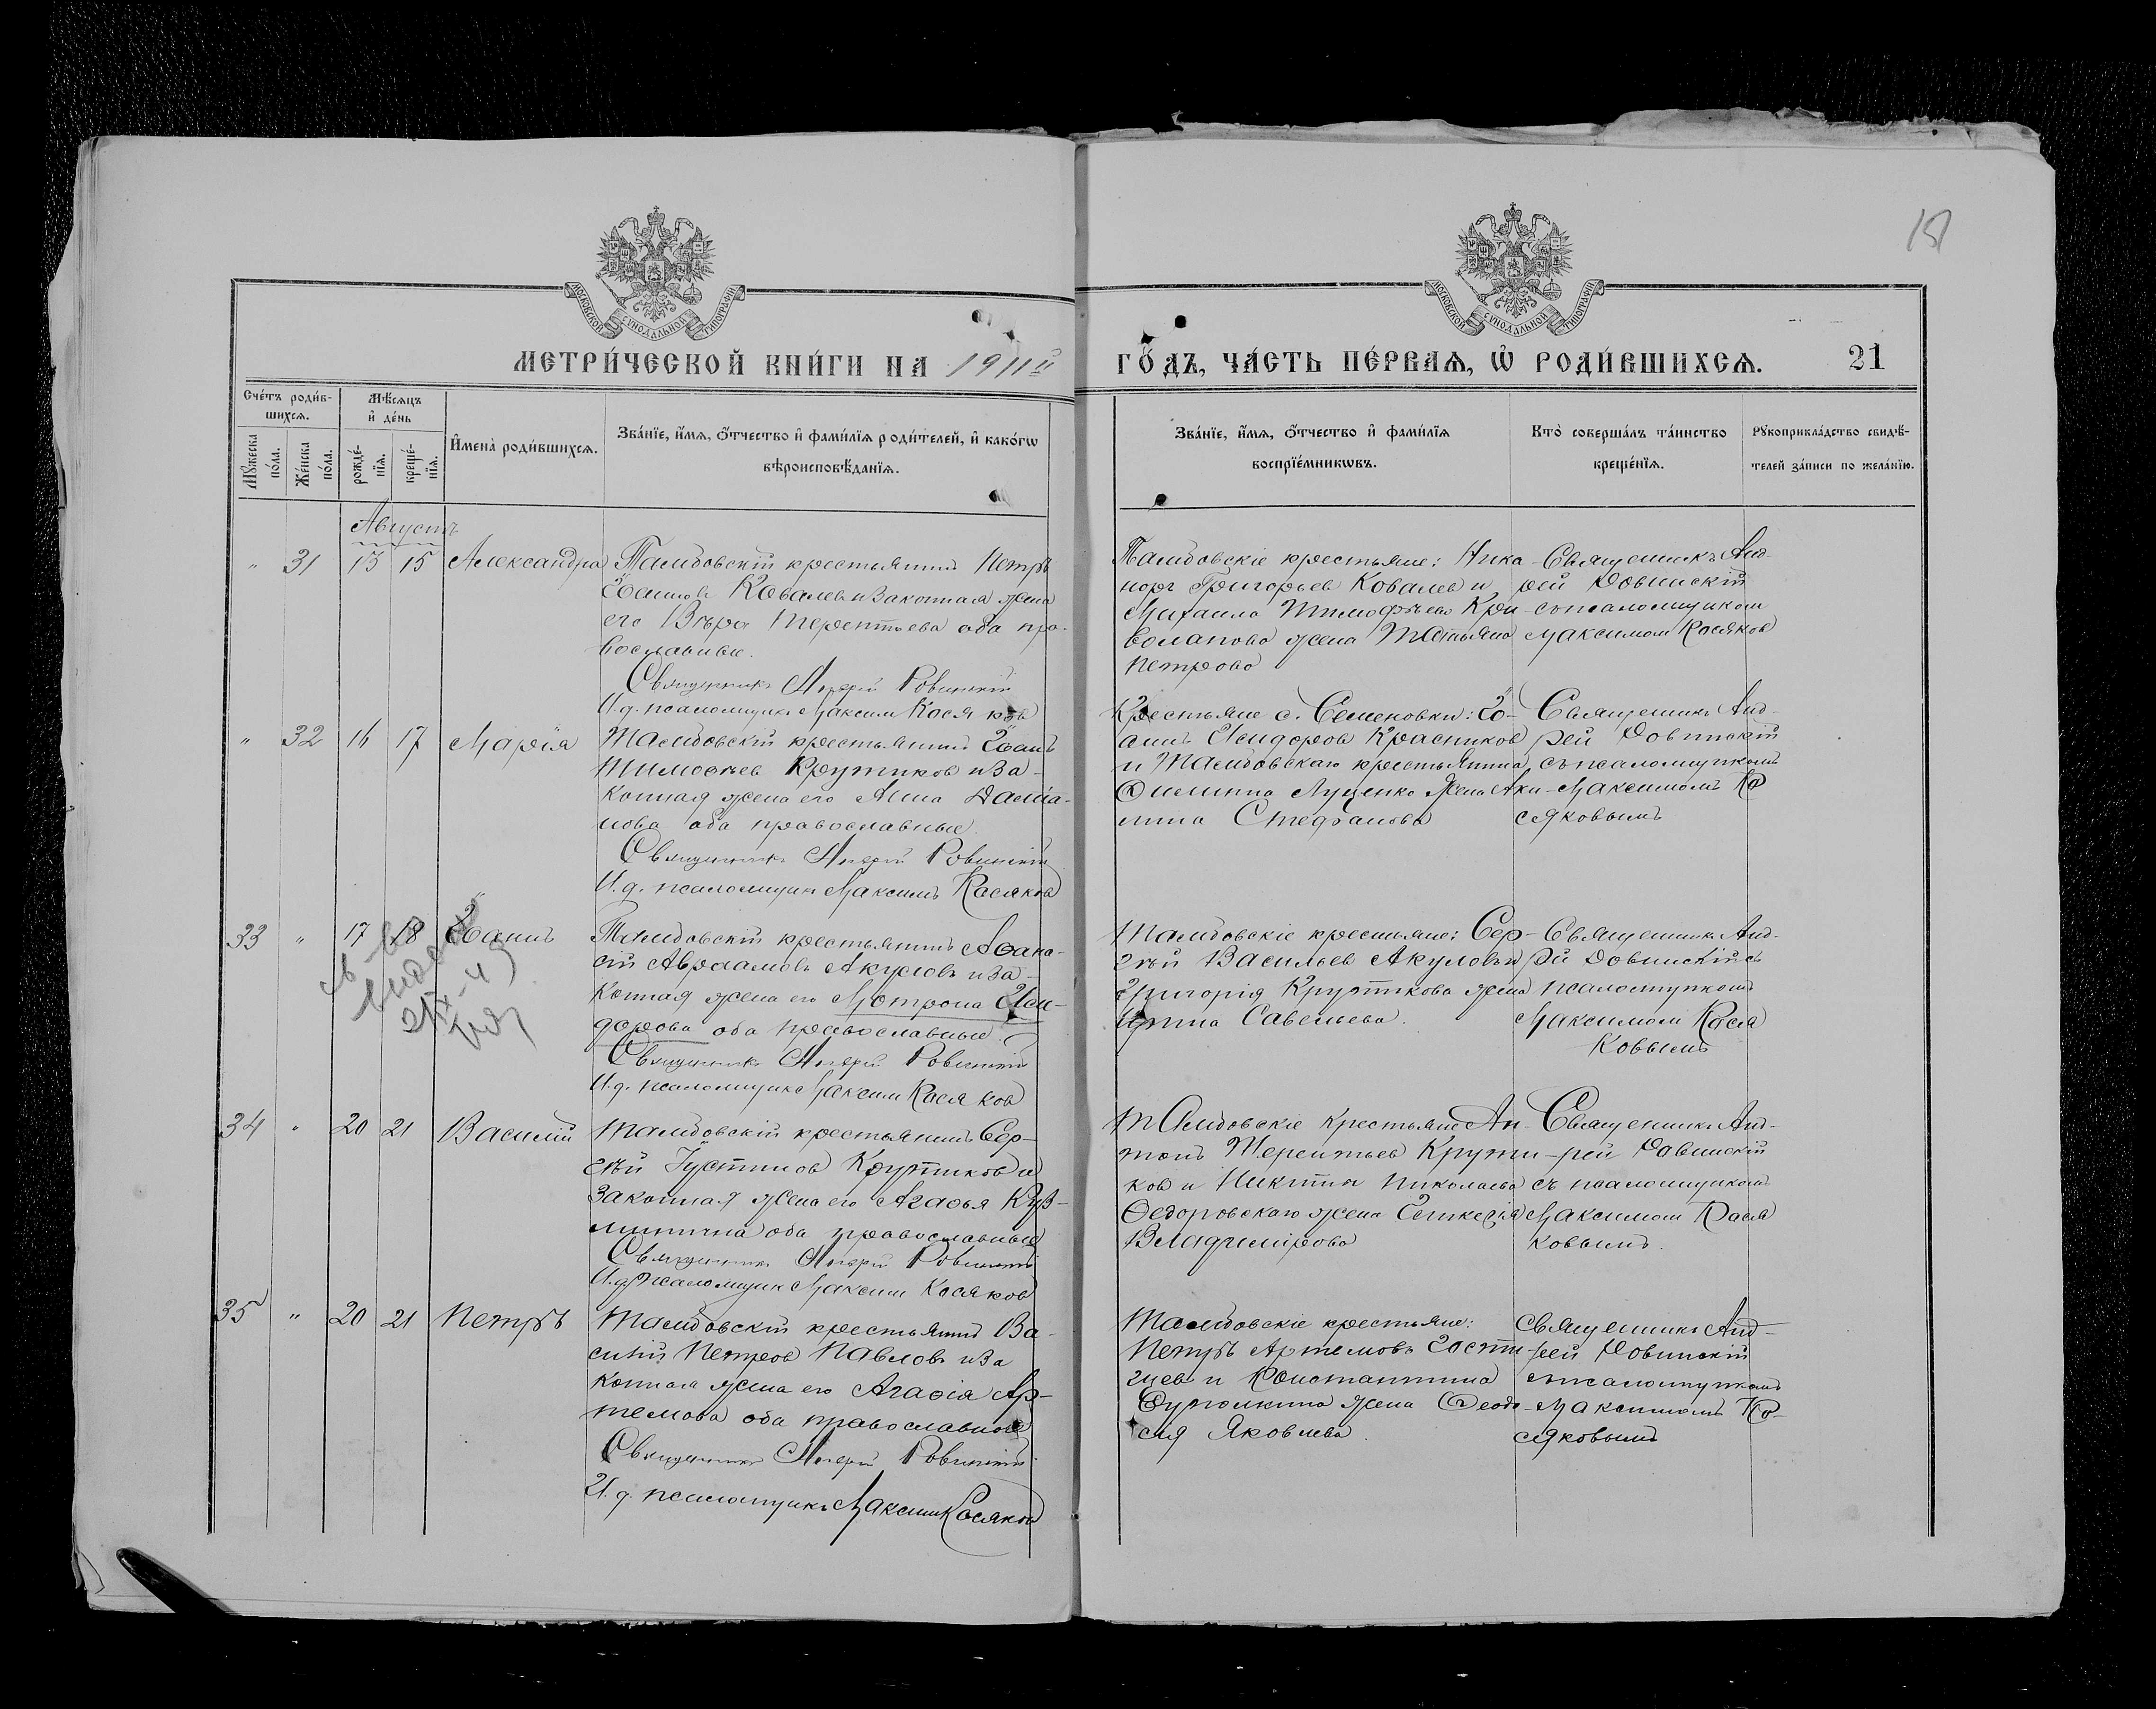 151
МОСКОВСКОЙ СУНОДАЛЬНОЙ ТИПОГРАФІИ
МОСКОВСКОЙ СУНОДАЛЬНОЙ ТИПОГРАФІИ
МЕТРИ́ЧЕСКОЙ КНИ́ГИ НА 1911й
ГО́ДЪ, ЧА́СТЬ ПЕ́РВАѦ, Ѡ҆ РОДИ́ВШИХСѦ. 21
Сче́тъ роди́в-
шихсѧ.
Мꙋ́жеска по́ла.
Же́нска по́ла.
Мѣ́сѧцъ
и҆ де́нь
рожде́-
нїѧ.
креще́-
нїѧ.
И҆мена̀ роди́вшихсѧ.
Зва́нїе, и҆́мѧ, ѻ҆́тчество и҆ фами́лїѧ роди́телей, и҆ како́гѡ
вѣроисповѣ́данїѧ.
Зва́нїе, и҆́мѧ, ѻ҆́тчество и҆ фами́лїѧ
воспрїе́мникѡвъ.
Кто̀ соверша́лъ та́инство
креще́нїѧ.
Рꙋкоприкла́дство свидѣ́-
телей за́писи по жела́нїю.
Августъ
" 31 13 15 Александра
Талдовскій крестьянинъ Петръ
Іоанновъ Ковалевъ и законная жена
его Вѣра Терентьева оба пра-
вославные.
Священникъ Андрей Ровинскій
И.д. псаломщика Максимъ Кося ков
Талдовскіе крестьяне: Ника-
норъ Григорьев Ковалев и
Михаила Тимофѣева Кри-
жена Татьяна
Петрова
Священникъ Анд-
рей Ровинскій
съ псаломщиком
Максимом Косяков
" 32 16 17 Марія
Талдовскій крестьянинъ Іоаннъ
Крутиков и за-
конная жена его Анна Даміа-
нова оба православные.
Священникъ Андрей Ровинскій
И.д. псаломщика Максимъ Косяков
Крестьяне с. Семеновки: Іо-
аннъ Исидоров Красников
и Талдовскаго крестьянина
Филиппа Луценко жена Аки-
лина Стефанова
Священникъ Анд-
рей Ровинскій
съ псаломщикомъ
Максимомъ Ко
сяковымъ
33 " 17 18 Іоаннъ
Талдовскій крестьянинъ Аѳана-
сій Авраамовъ Акуловъ и за-
конная жена его Мотрона Иси-
дорова оба православные.
Священникъ Андрей Ровинскій
И.д. псаломщика Максим Кося ков
Талдовскіе крестьяне: Сер-
гѣй Васильев Акуловъ и
Григорія Крутикова жена
Ирина Савельева.
Священникъ Анд-
рй Ровинскій съ
псаломщикомъ
Максимом Кося
ковымъ
34 " 20 21 Василій
Талдовскій крестьянинъ Сер-
гѣй Іустинов Крутиков и
законная жена его Агаѳья Куз-
минична оба православные
Священникъ Андрей Ровинскій
И.д. псаломщик Максим Косяков
Талдовскіе крестьяне Ан-
тонъ Терентьев Крути-
ков и Никиты Николаева
Ѳедоровскаго жена
Владимірова
Священникъ Анд-
рей Ровинскій
съ псаломщикомъ
Максимом Кося
ковымъ.
35 " 20 21 Петръ
Талдовскій крестьянинъ Ва-
силій Петров Павловъ и за
конная жена его Агаѳія Ар-
темова оба православные
Священникъ Андрей Ровинскій
И.д. псаломщикъ Максим Косяков
Талдовскіе крестьяне:
Петръ Артемовъ
и Константина
жена Ѳеодо-
сія Яковлева.
Священникъ Анд-
рей Ровинскій
съ псаломщикомъ
Максимомъ Ко-
сяковымъ